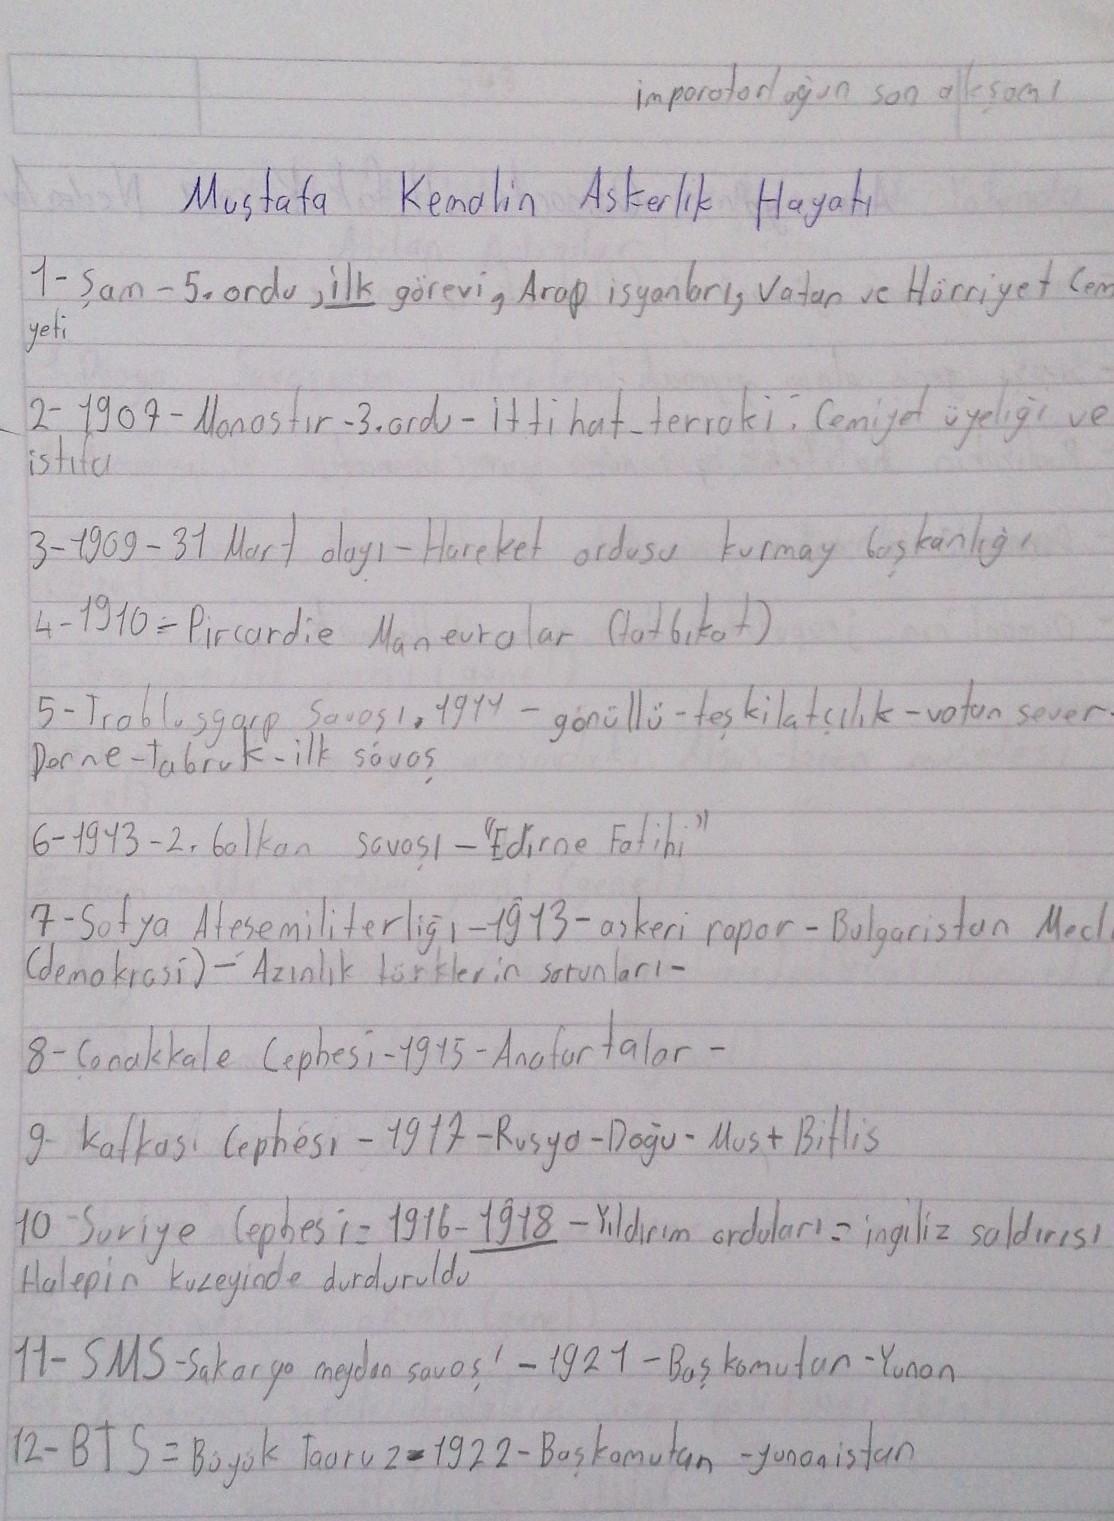 imparatorloğun son akşamı
Mustafa Kemalin Askerlik Hayatı
1- Şam - 5. ordu, ilk görevi, Arap isyanları, Vatan ve Hürriyet Cem
yeti
2- 1907 - Manastır - 3. ordu - ittihat - terraki. Cemiyet üyeliği ve
istifa
3-1909 - 31 Mart olayı - Hareket ordusu kurmay başkanlığı
4-1910 = Pircardie Manevralar (tatbikat)
5-Trablusgarp Savaşı, 1911 - gönüllü - teşkilatçılık - vatan sever.
Derne - Tabruk - ilk savaş
6-1913 - 2. balkan savaşı - "Edirne Fatihi"
7-Sofya Ateşemiliterliği - 1913 - askeri rapor - Bulgaristan Mecl
(demokrasi) - Azınlık türklerin sorunları -
8- Çanakkale Cephesi - 1915 - Anafartalar -
9- Kafkas Cephesi - 1917 - Rusya - Doğu - Mus + Bitlis
10 - Suriye Cephesi = 1916 - 1918 - Yıldırım orduları = ingiliz saldırısı
Halepin kuzeyinde durduruldu
11- SMS - Sakarya meydan savaşı - 1921 - Başkomutan - Yunan
12- BTS = Büyük Taaruz - 1922 - Başkomutan - yunanistan